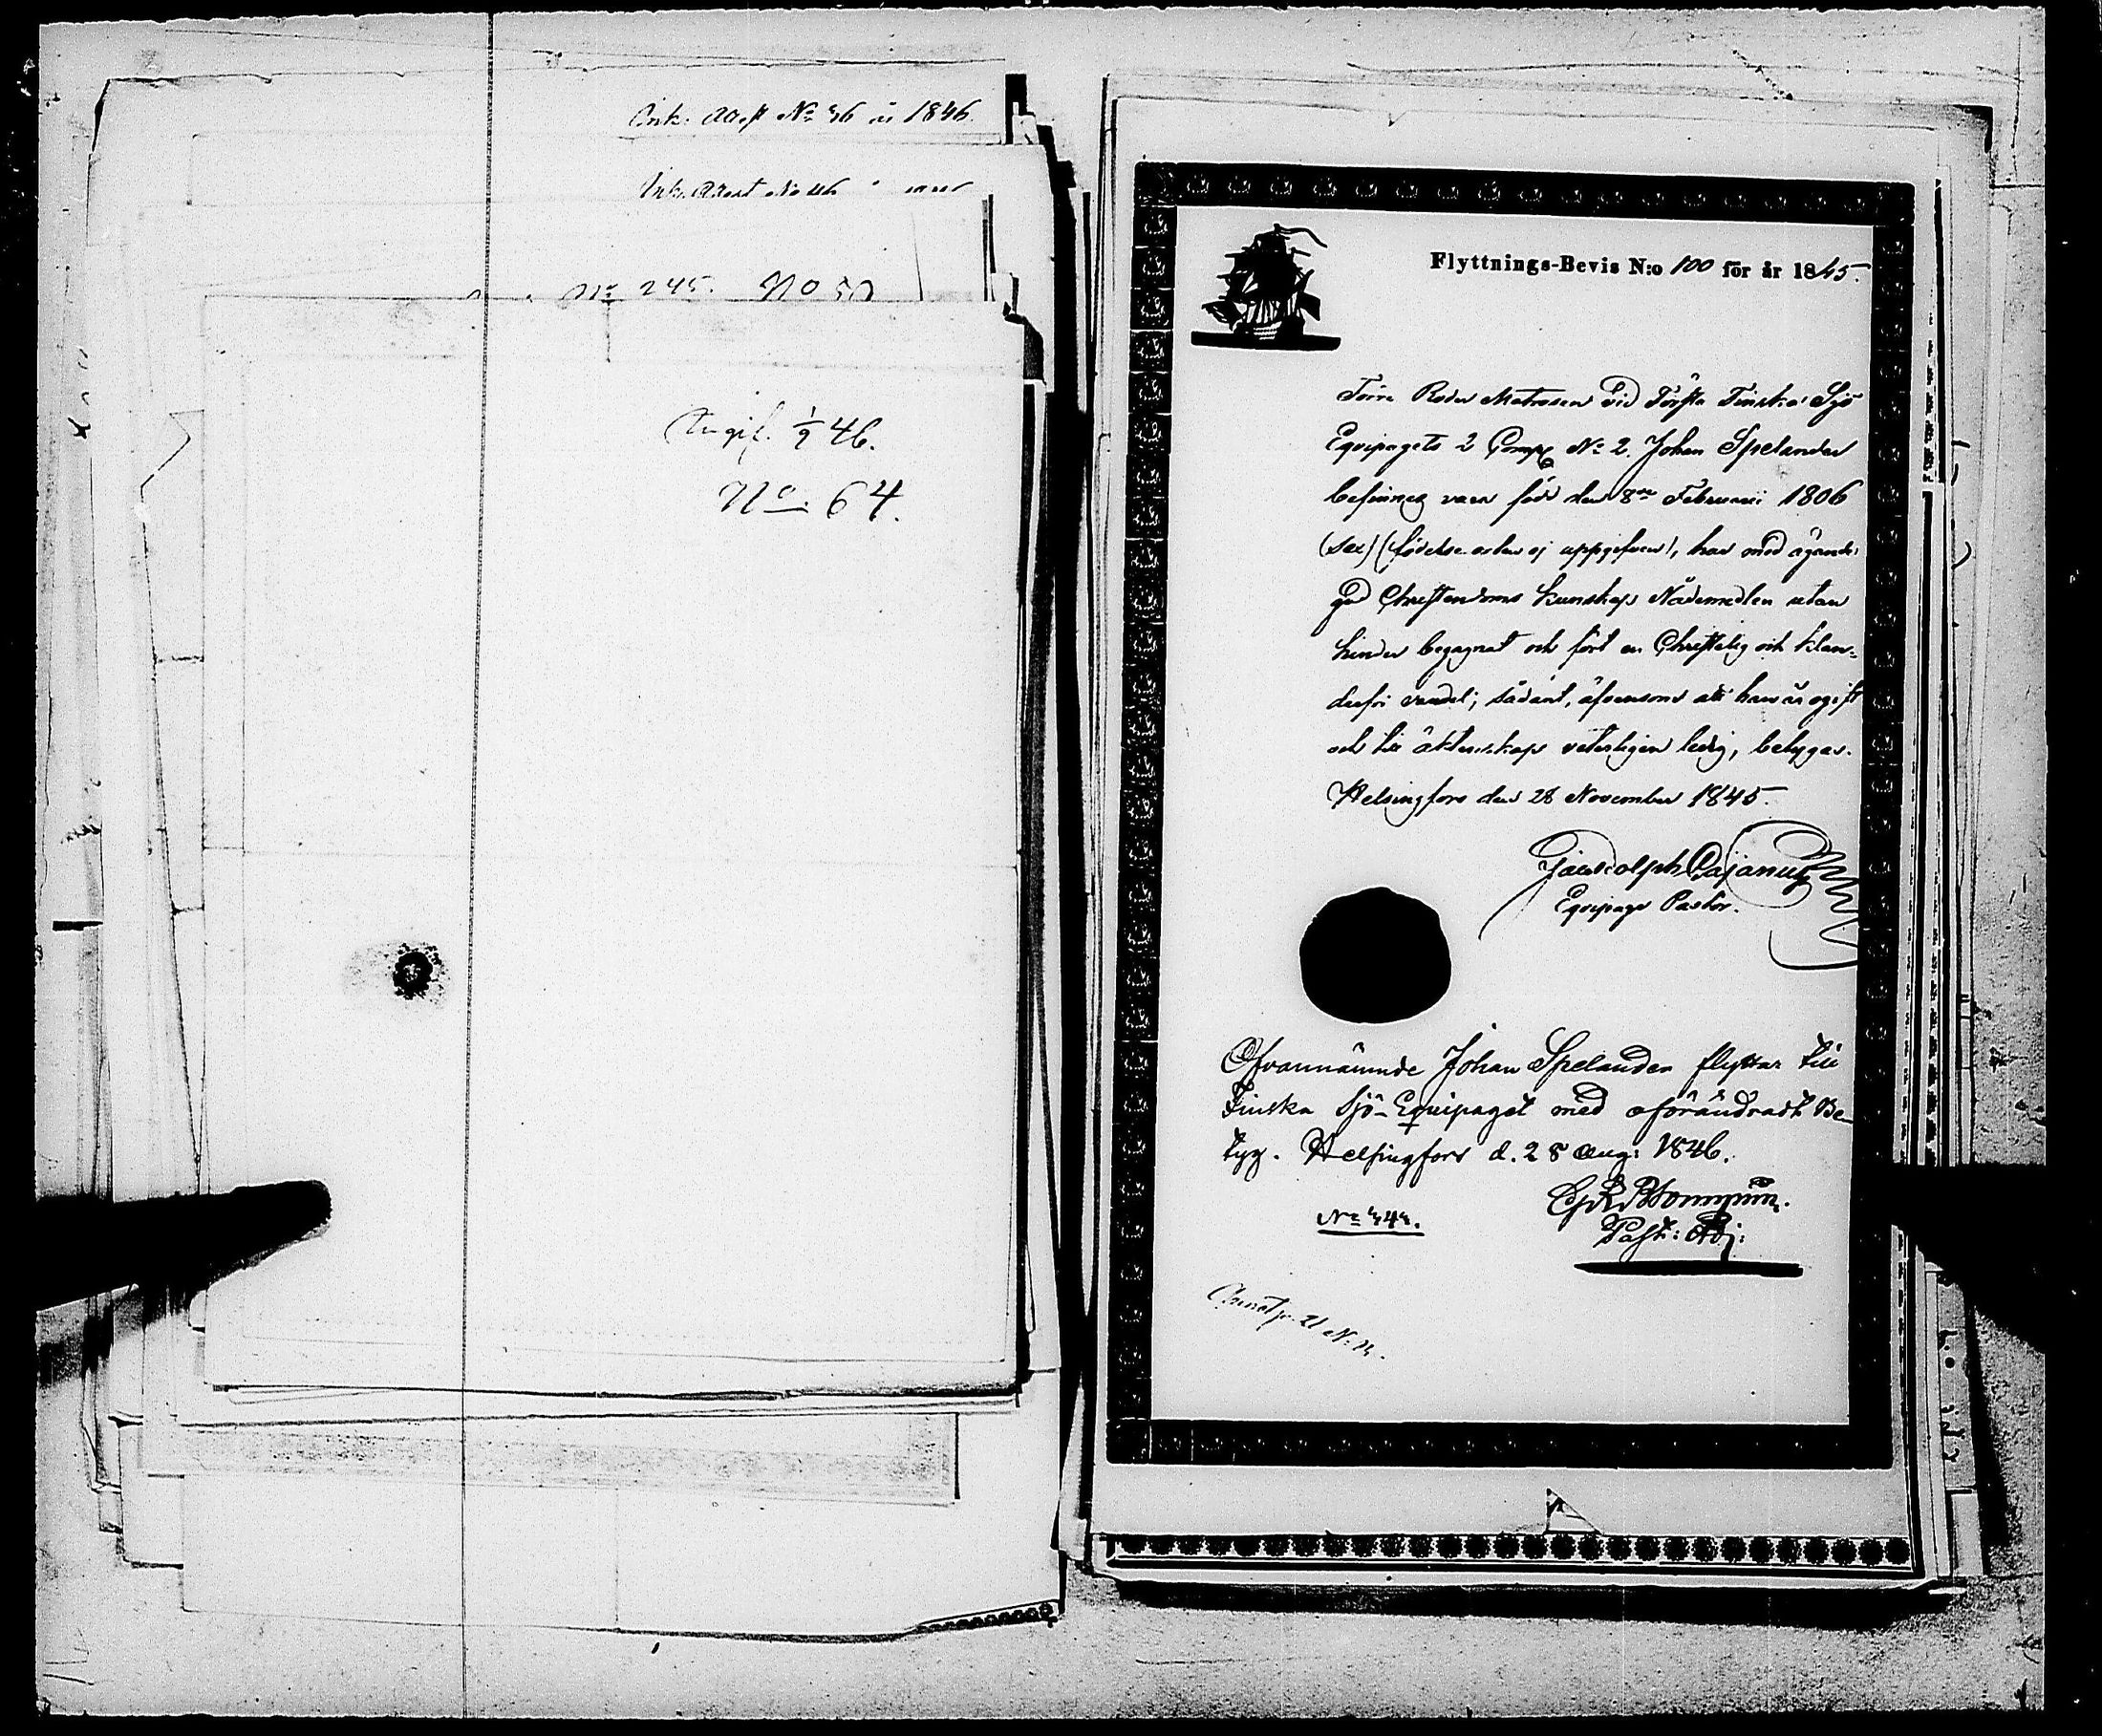 Ink: Attest No 36 år 1846.
Ink. Attest No 46
No 245. No 50
Angif. 1/9 46.
No. 64.
Flyttnings-Bevis N:o 100 för år 1845.
Förre Roder Matrosen vid Förste Finska Sjö
Equipagets 2 Comp No 2. Johan Spelander
befinnes vara född den 8de Februari 1806
(sex) (födelse orten ej uppgifven), har med ägande
god Christendoms kunskap Nådemedlen utan
hinder begagnat och fört en Christelig och klan-
derfri vandel; sådant, äfvensom att han är ogift
och till äktenskap veterligen ledig, betygas.
Helsingfors den 28 November 1845.
Cajanus
Equipage Pastor.
Ofvannämnde Johan Spelander flyttar till
Finska Sjö-Equipaget med oförändradt Be-
tyg. Helsingfors d. 28 Aug: 1846.
Past: Adj: